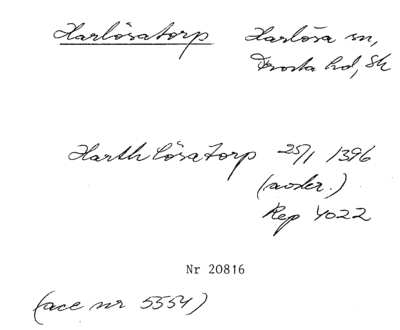 Harlösatorp Harlösa sn,
Frosta hd, Sk
Harthlösatorp 25/1 1396
(avskr.)
Rep 4022
Nr 20816
(acc nr 5554)